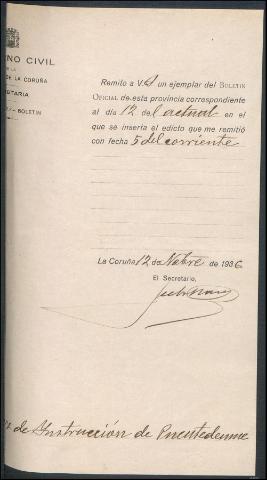 NO CIVIL
DE LA CORUÑA
BOLETIN
Remito a V.S un ejemplar del BOLETIN
OFICIAL de esta provincia correspondiente
al día 12 del actual en el
que se inserta el edicto que me remitió
con fecha 5 del corriente
La Coruña 12 de Novbre de 1936
El Secretario,
de Instrucción de Puentedeume